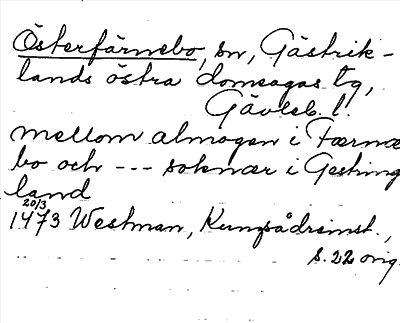 Österfärnebo, sn, Gästrik-
lands östra domsagas tg,
Gävleb. l.
mellom almogen i Færnæ
bo och --- soknær i Gesting
land
20/3
1473 Westman, Kungsådreinst.,
s. 22 orig.